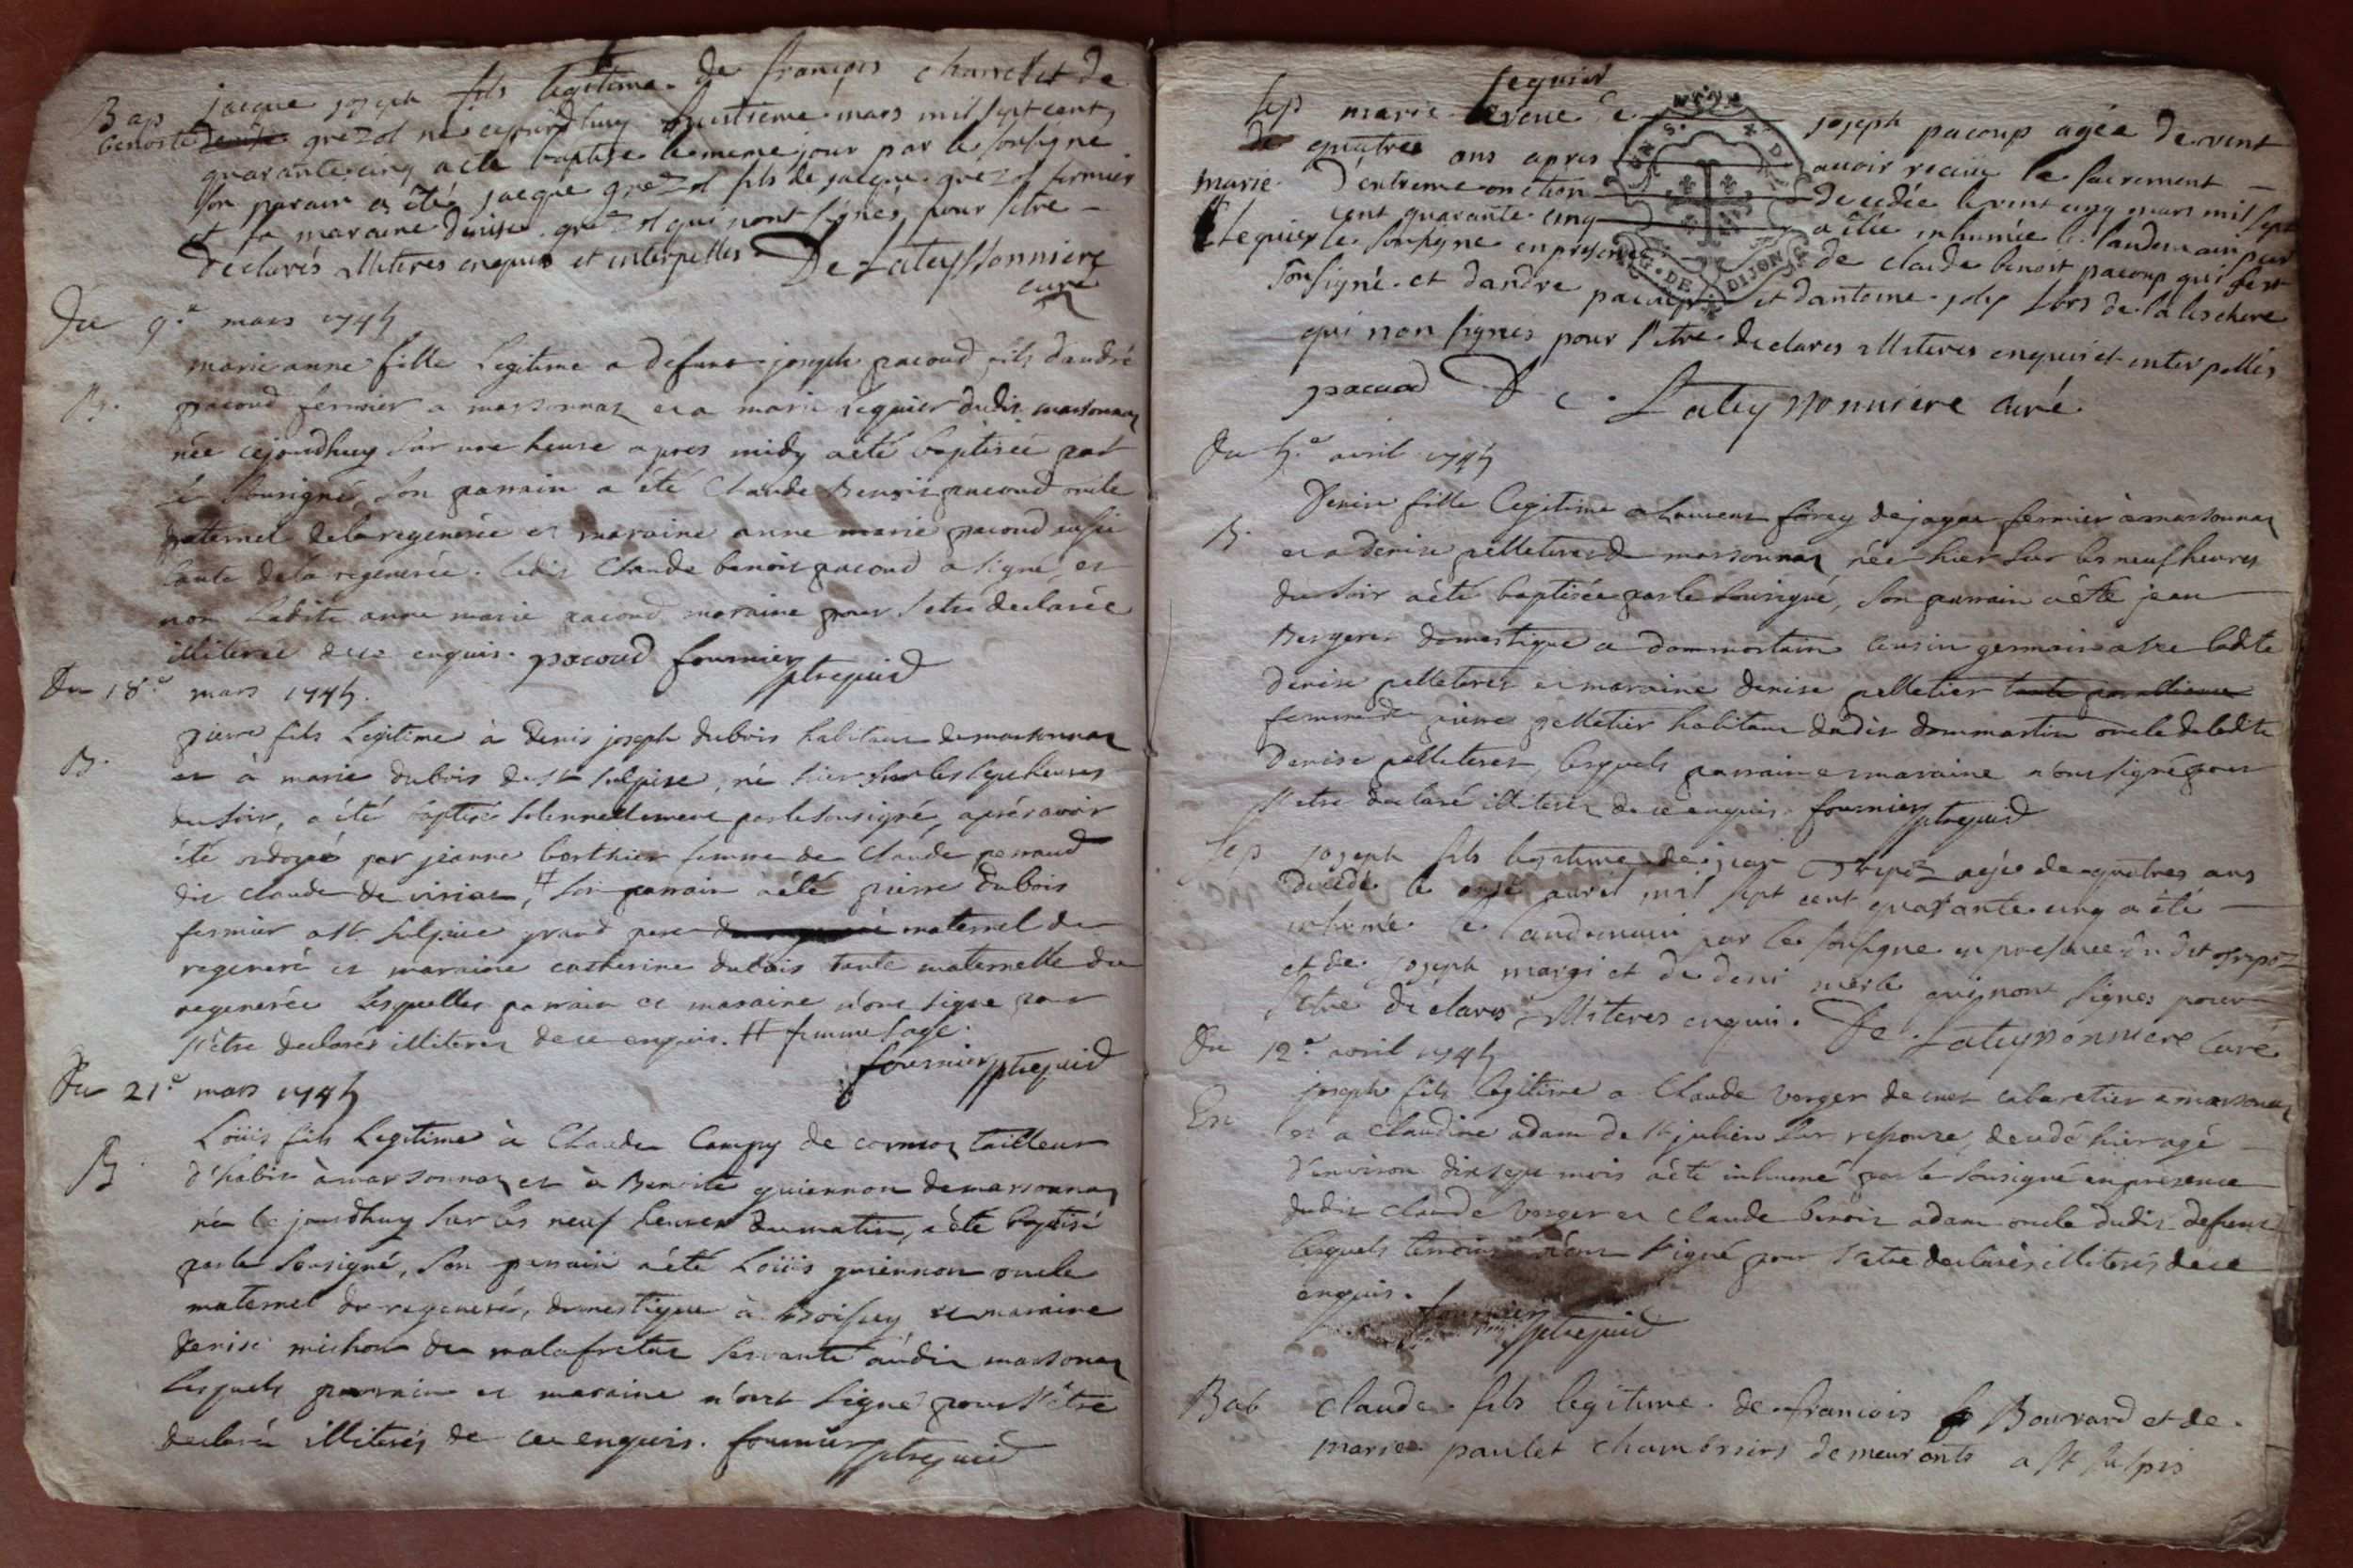 Bap jacque joseph fils legitime de françois chanel et de
benoite denise grezol né cejourdhuy huitieme mars mil sept cent
quarante cinq a été baptise le meme jour par le sousigne
son parain a été jacque grezol fils de jacque grezol fermier
et sa maraine denise grezol qui nont signés pour setre
declarés illiteres enquis et interpelles De Lateyssonniere
curé
Du 9.e mars 1745
marie anne fille Legitime a defunt joseph pacoud fils dandré
B. pacoud fermier a marsonnaz et a marie sequier dudit marsonnaz
née cejourdhuy sur une heure apres midy a été baptisée par
le sousigné, son parrain a été Claude Benoit pacoud oncle
paternel de la regenerée et maraine anne marie pacoud aussi
tante de la regenerée. ledit Claude benoit pacoud a signé, et
non ladite anne marie pacoud maraine pour s'etre declarée
illiteree de ce enquis. pacoud fournier ptre
Du 18.e mars 1745.
pierre fils Legitime à denis joseph dubois habitant de marsonnaz
B. et à marie dubois de st sulpice, né hier sur les sept heures
du soir, a été baptisé solennellement par le sousigné, aprés avoir
été ondoyé par jeanne borthier femme de Claude perraud
dit claude de viriat, # son parrain a été pierre dubois
fermier a st sulpice grand pere maternel du
regeneré et maraine catherine dubois tante maternelle du
regenerée lesquelles parrain et maraine n'ont signe pour
s'etre declarés illiterez de ce enquis. # femme sage.
fournier ptre
Du 21.e mars 1745
Loüis fils Legitime à Claude Campy de cormoz tailleur
B. d'habit à marsonnaz et à Benoite guiennon de marsonnaz
né ce jourdhuy sur les neuf heures du matin, a été baptisé
par le sousigné, son parrain a été Loüis guiennon oncle
maternel du regeneré, domestique à boissey et maraine
denise michon de malafretaz servante audit marsonnaz
lesquels parrain et maraine n'ont signé pour s'être
declaré illiterés de ce enquis. fournier ptre
sequier
Sep marie veuve de joseph pacoup agée de vent
de quatres ans apres avoir reciüe le sacrement
marie d'entreme onction decedée le vent cinq mars mil sept
sequier cent quarante cinq a été inhumée le landemain par
le sousigne en presence de claude benoit pacoup qui sest
sousigné et dandre pacoup et dantoine joly
qui non signés pour s'etre declares illiteres enquis et interpellés
pacoud De Lateyssonniere curé
Du 5.e avril 1745
Denise fille legitime a Laurent forey de jayat fermier à marsonnaz
B. et a denise pelleterat de marsonnaz, née hier sur les neuf heures
du soir a été baptisée par le sousigné, son parrain a été jean
Bergeret domestique a dommartin cousin germain a la ladite
denise pelleteret et maraine denise pelletier tante
femme de pierre pelletier habitant dudit dommartin oncle de ladite
Denise pelleteret, lesquels parrain et maraine n'ont signé pour
s'etre declaré illiteréz de ce enquis. fournier ptre
Sep joseph fils legitime de jean agée de quatres ans
decedé le onze avril mil sept cent quarante cinq a été
inhumé le landemain par le sousigne en presence du dit
et de joseph margi et de deni merle qui nont signés pour
setre declarés illiteres enquis. De Lateyssonniere Curé
Du 12.e avril 1745
joseph fils legitime a Claude verger de cuet cabaretier a marsonnaz
et a Claudine adam de st julien sur reyssouze, decedé hier agé
d'environ dix sept mois a été inhumé par le sousigné en presence
dudit Claude verger et claude benoit adam oncle dudit defunt
lesquels temoins n'ont signé pour s'etre declarés illiterés de ce
enquis.
fournier ptre
Bab claude fils legitime de francois Bouvard et de
marie paulet demeurants a st sulpis
DE DIJON